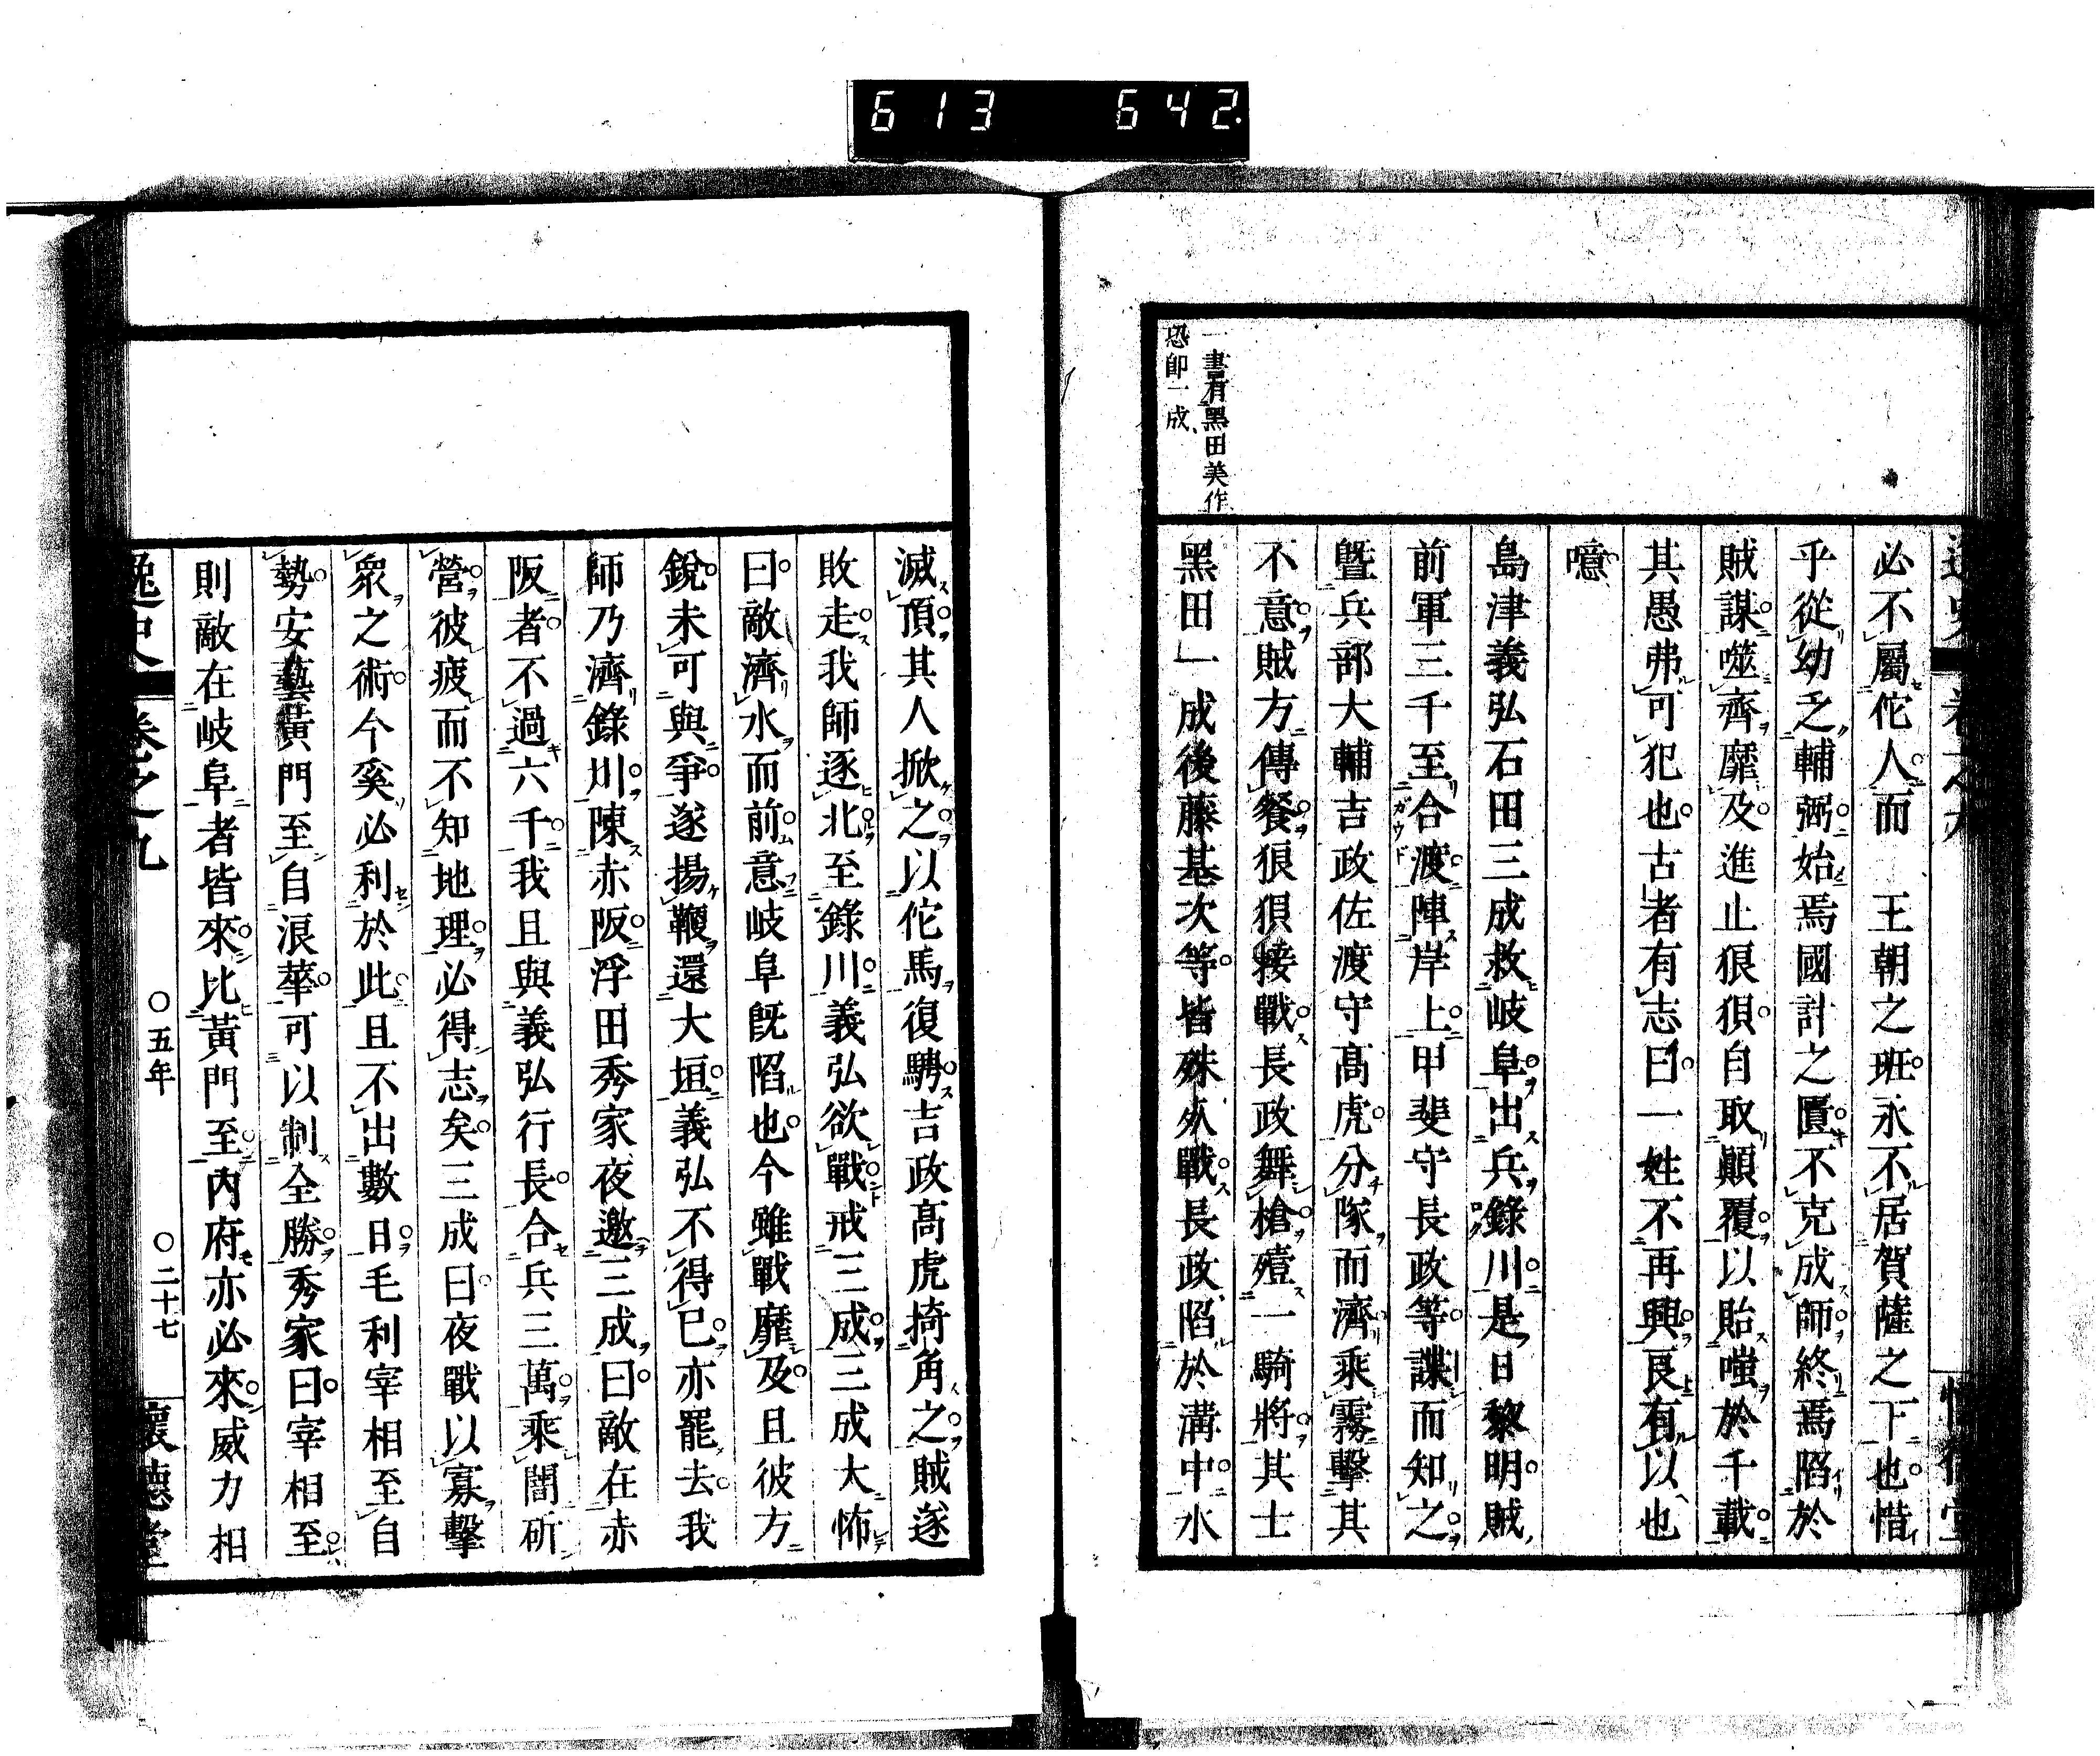 613 642.
必不屬佗人而 王朝之班永不居賀薩之下也惜
乎從幼乏輔弼始焉國計之匱不克成師終焉陷於
賊謀噬齊靡及進止狼狽自取顚覆以貽嗤於千載
其愚弗可犯也古者有志曰一姓不再興良有以也
噫
島津義弘石田三成救岐阜出兵錄川是日黎明賊
前軍三千至合渡陣岸上甲斐守長政等諜而知之
曁兵部大輔吉政佐渡守高虎分隊而濟乘霧擊其
不意賊方傳餐狼狽接戰長政舞槍殪一騎將其士
黑田一成後藤基次等皆殊死戰長政陷於溝中水
一書有黑田美作
恐卽一成
滅頂其人掀之以佗馬復騁吉政高虎掎角之賊遂
敗走我師逐北至錄川義弘欲戰戒三成三成大怖
曰敵濟水而前意岐阜旣陷也今雖戰靡及且彼方
銳未可與爭遂揚鞭還大垣義弘不得已亦罷去我
師乃濟錄川陳赤阪浮田秀家夜邀三成曰敵在赤
阪者不過六千我且與義弘行長合兵三萬乘闇斫
營彼疲而不知地理必得志矣三成曰夜戰以寡擊
衆之術今奚必利於此且不出數日毛利宰相至自
勢安藝黃門至自浪華可以制全勝秀家曰宰相至
則敵在岐阜者皆來比黃門至內府亦必來威力相
逸史 卷之九 ○五年 ○二十七 懷德堂